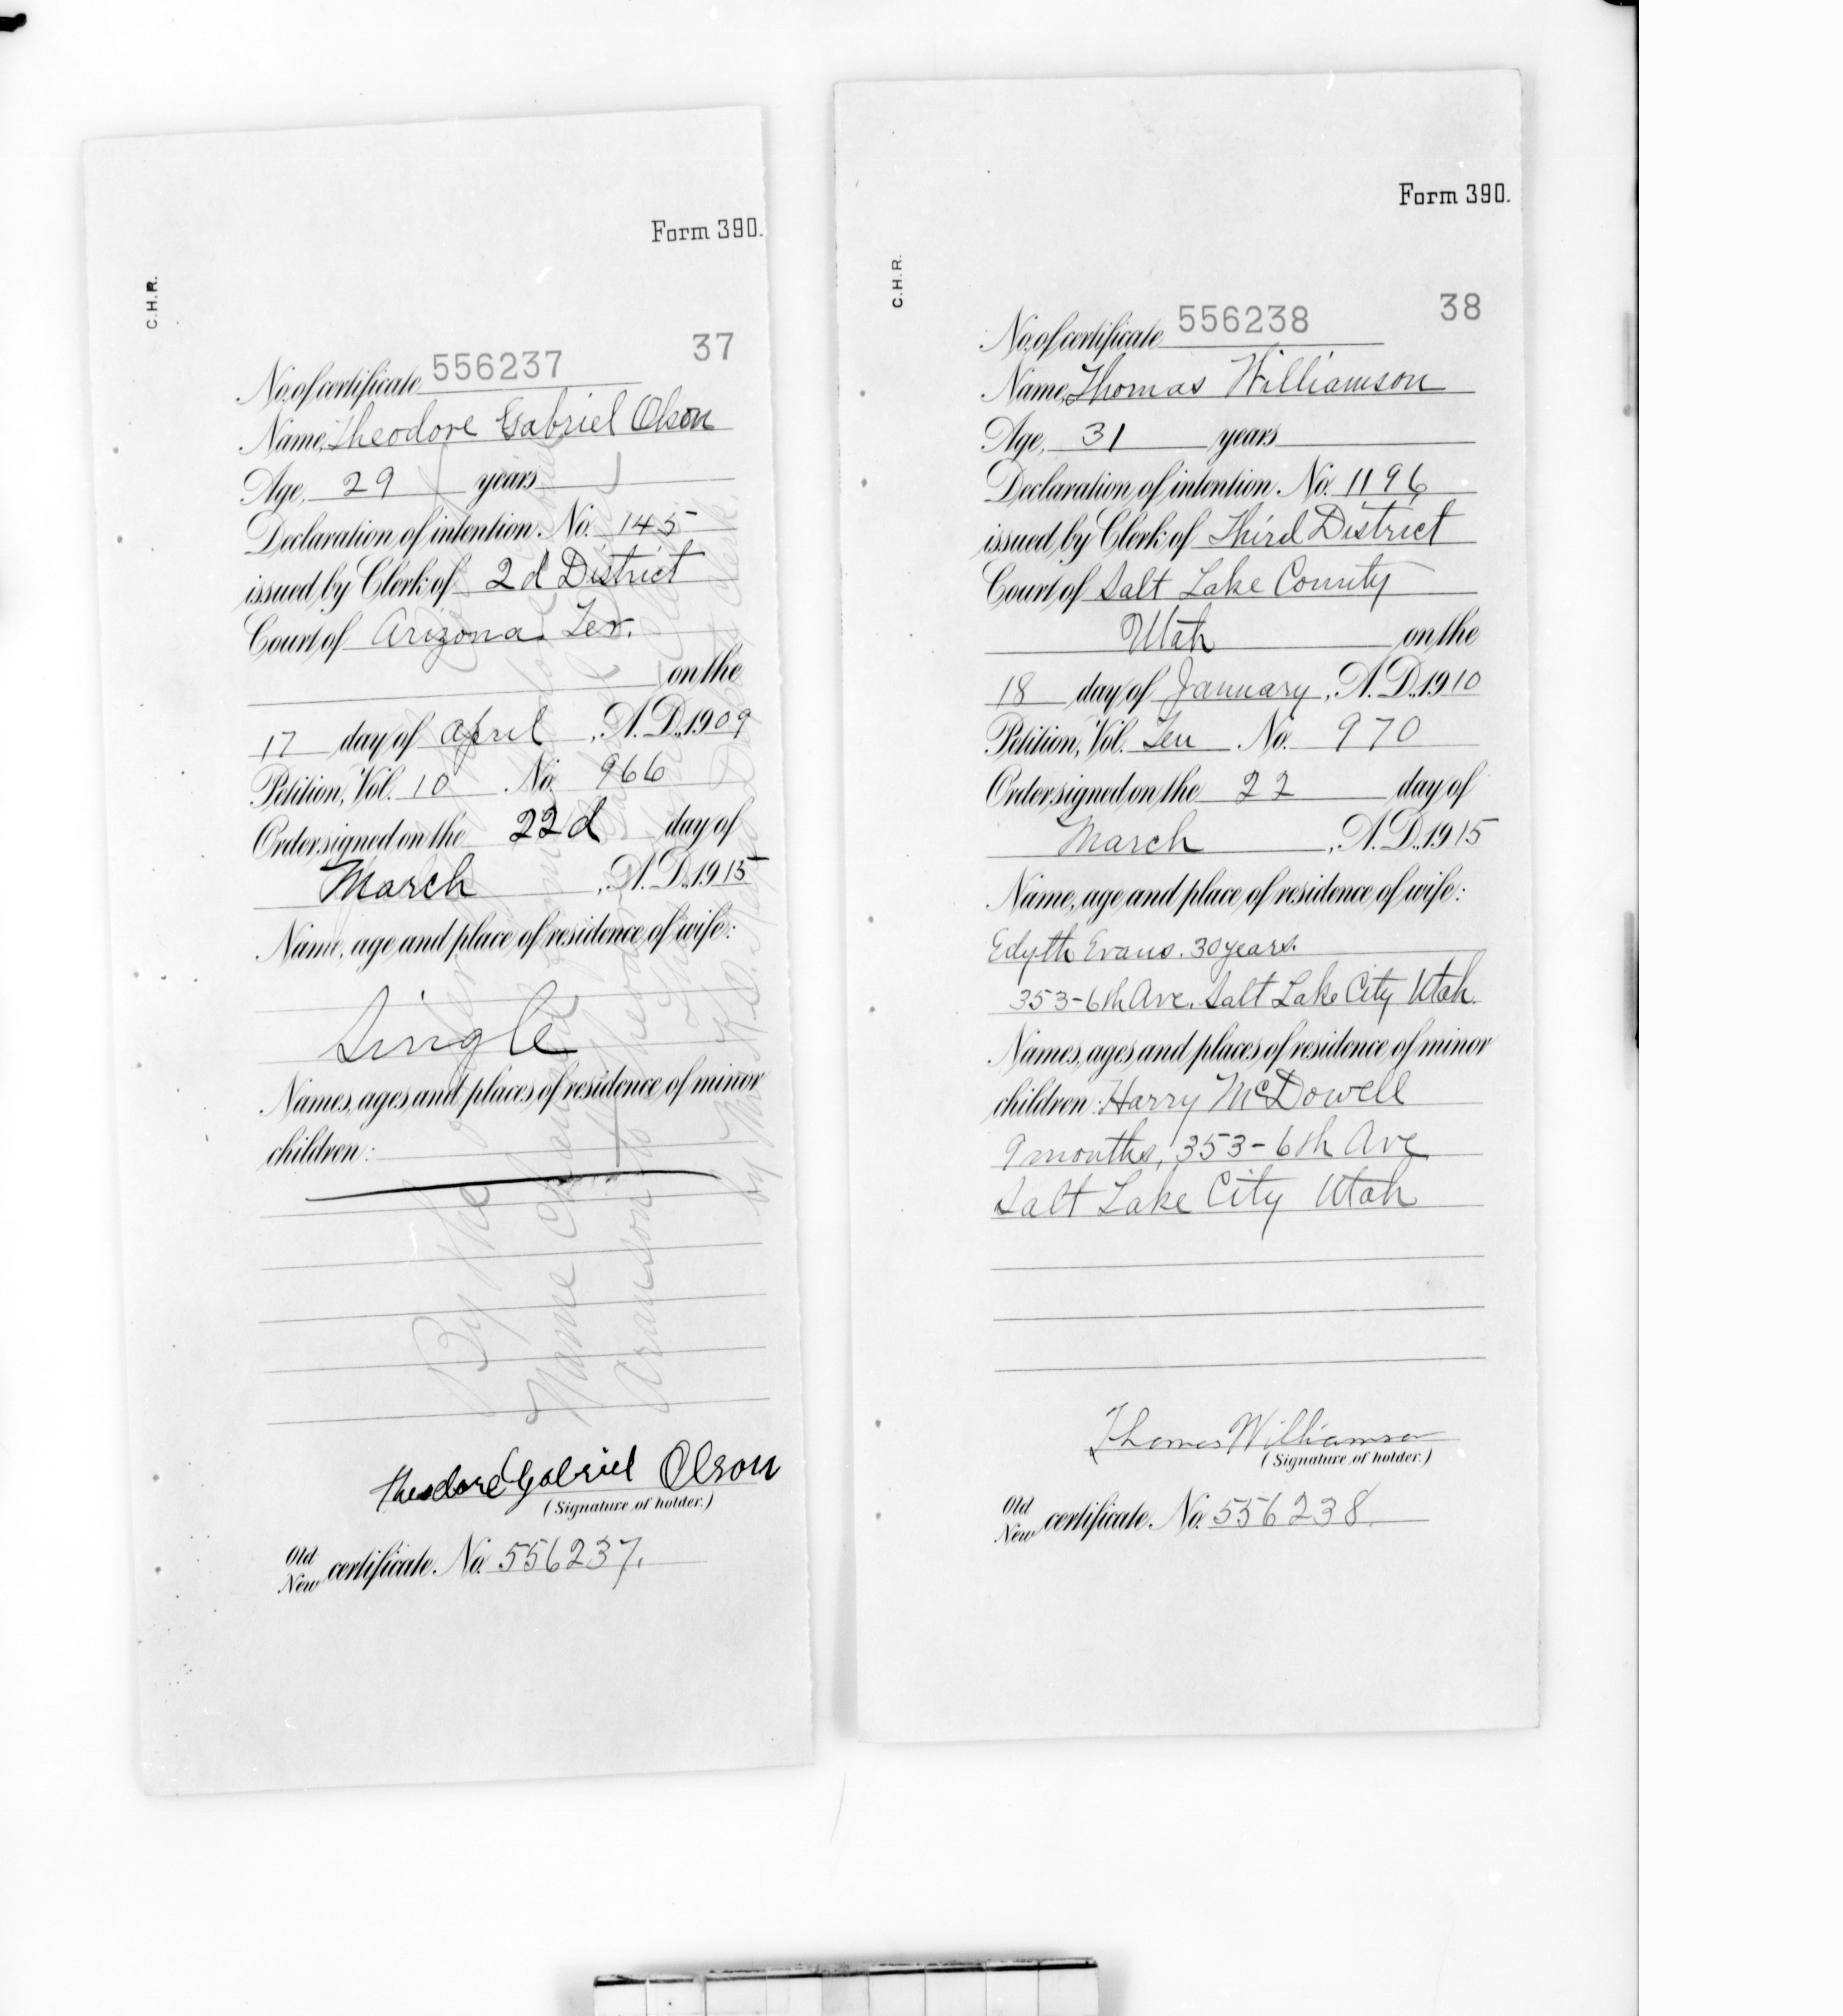 Form 390.
C.H.R.
37
No. of certificate 556237
Name, Theodore Gabriel Olson
Age, 29 years
Declaration of intention. No. 145
issued by Clerk of 2d District
Court of Arizona Ter.
on the
17 day of April, A. D., 1909
Petition, Vol. 10 No. 966
Order signed on the 22d day of
March, A. D., 1915
Name, age and place of residence of wife:
Single
Names, ages and places of residence of minor
children:
By the
Name Changed
Aranson to Theodore
Theodore Gabriel Olson
(Signature of holder.)
Old
New certificate. No. 556237.
Form 390.
C.H.R.
38
No. of certificate 556238
Name, Thomas Williamson
Age, 31 years
Declaration of intention. No. 1196
issued by Clerk of Third District
Court of Salt Lake County
Utah on the
18 day of January, A. D., 1910
Petition, Vol. Ten No. 970
Order signed on the 22 day of
March, A. D., 1915
Name, age and place of residence of wife:
Edyth Evans. 30 years.
353-6th Ave. Salt Lake City Utah.
Names, ages and places of residence of minor
children: Harry McDowell
9 months, 353-6th Ave
Salt Lake City Utah
Thomas Williamson
(Signature of holder.)
Old
New certificate. No. 556238.